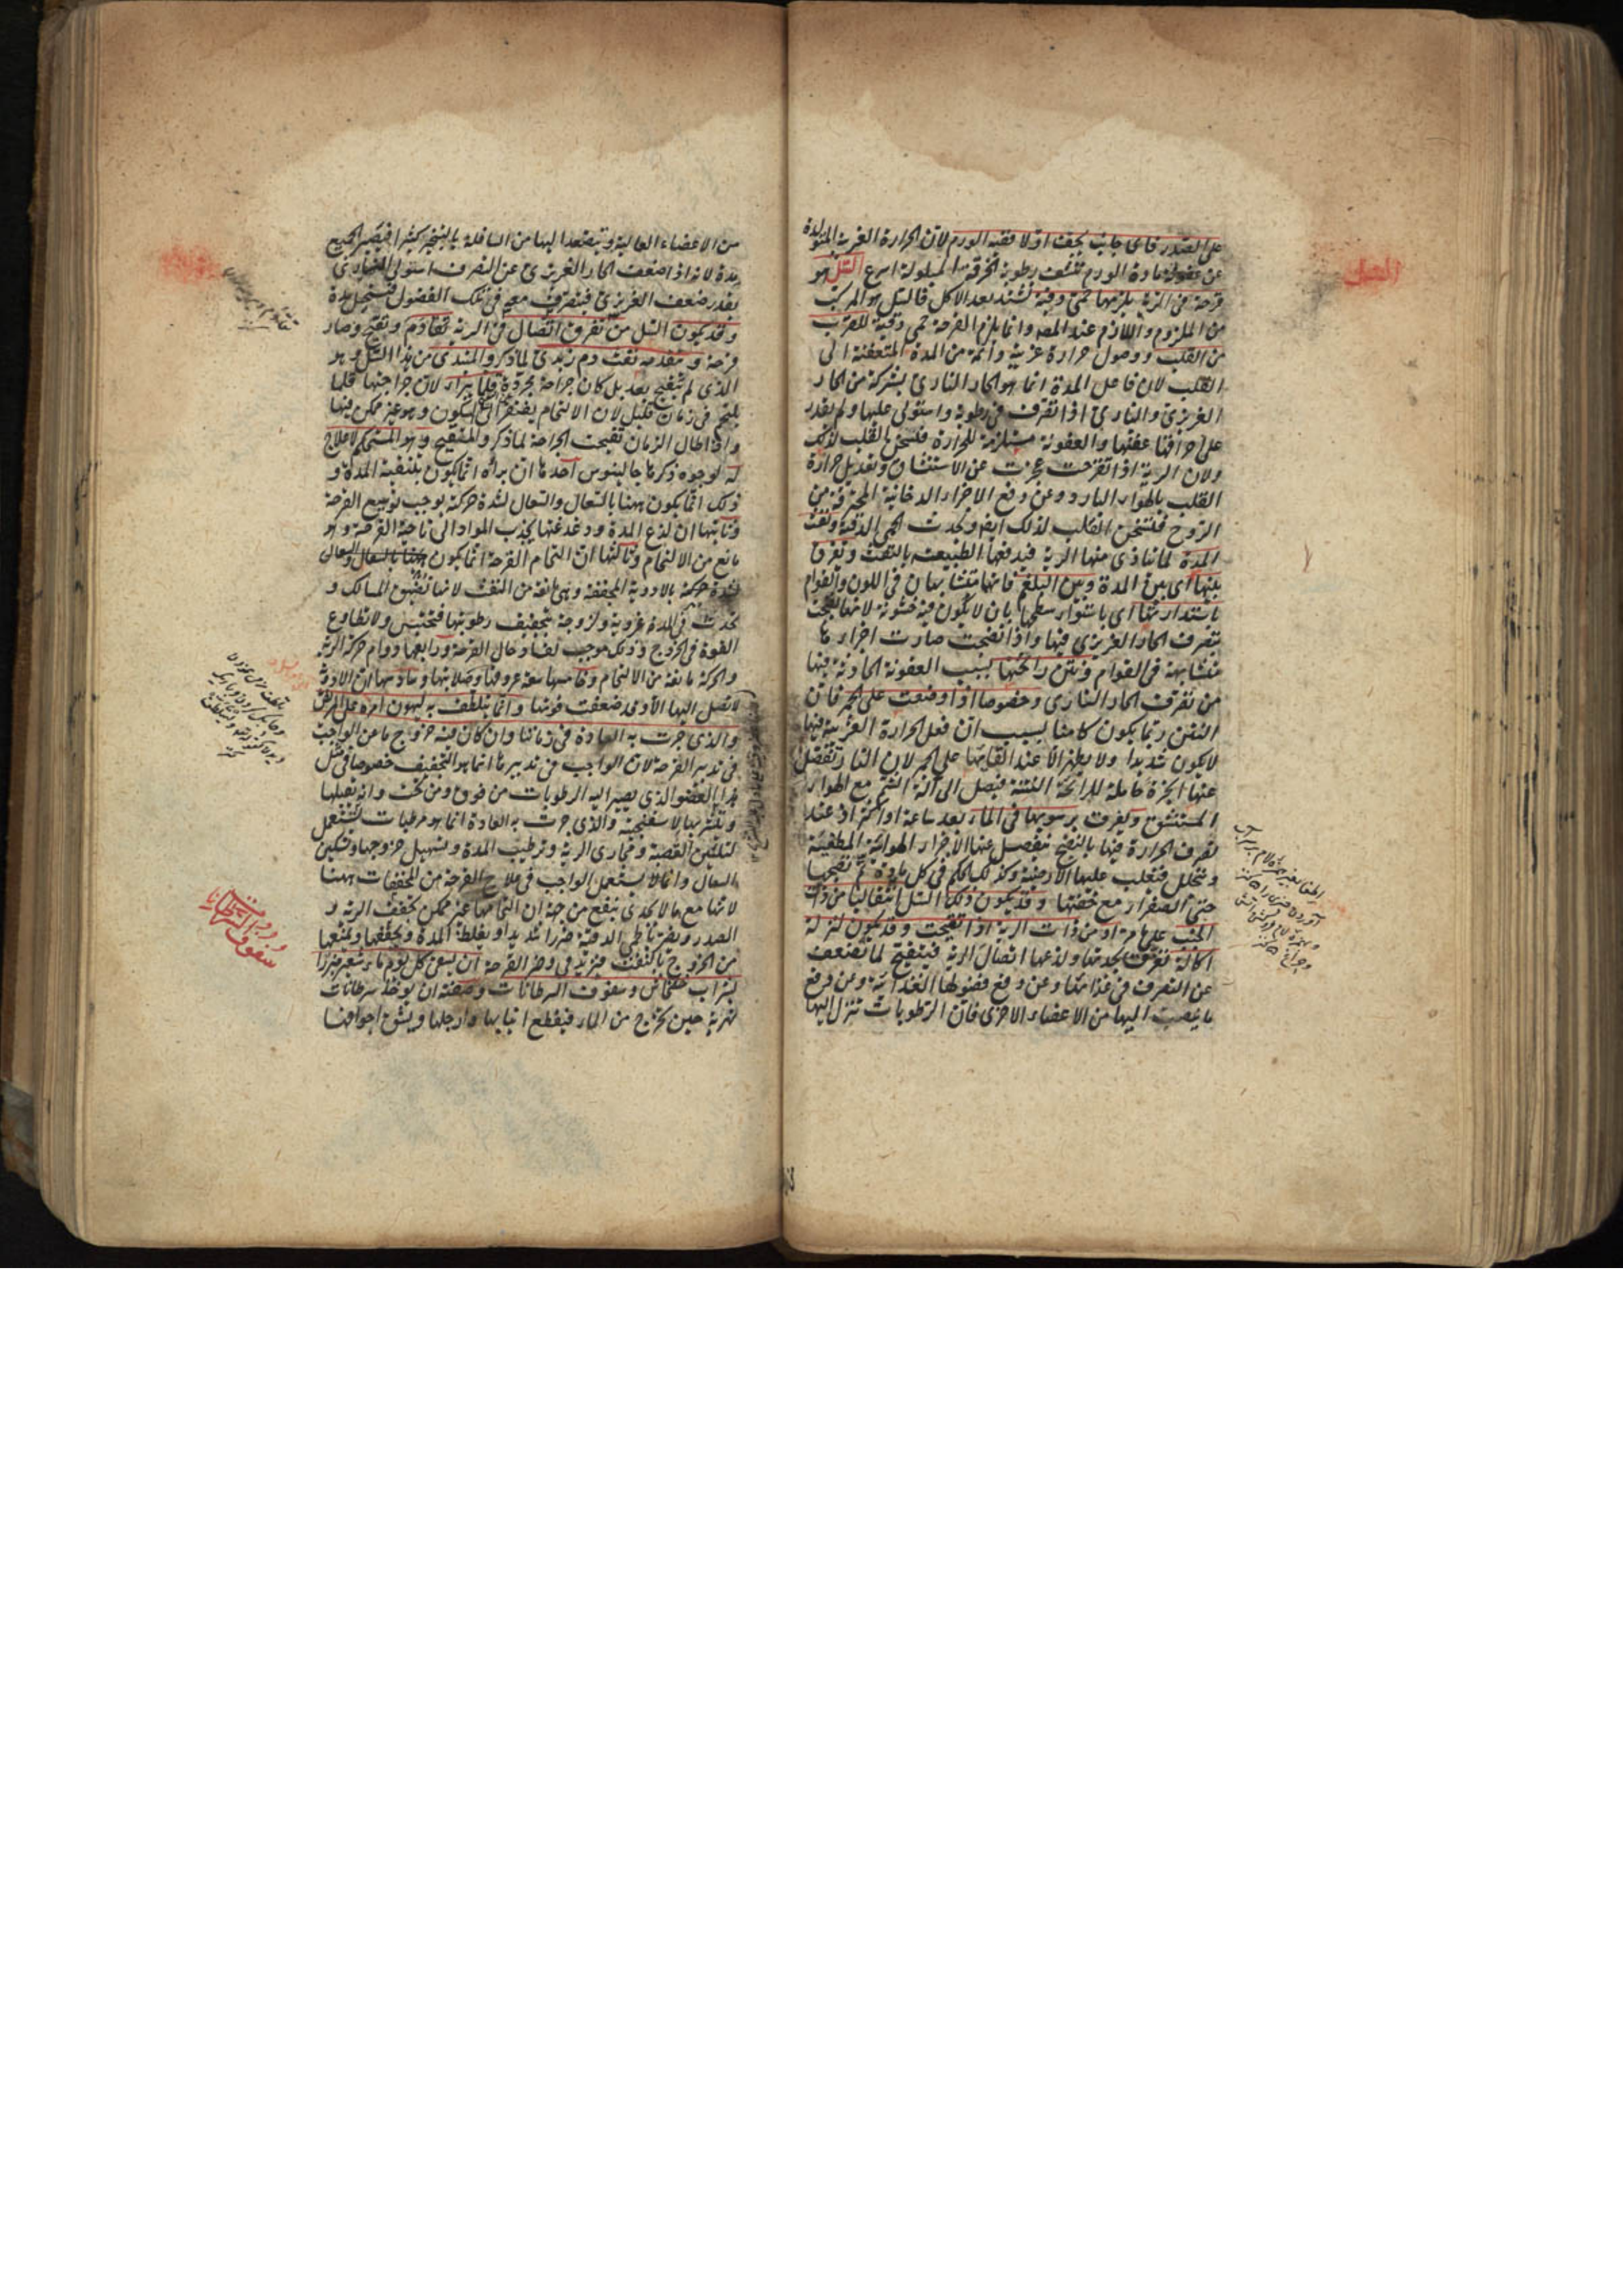 على الصدر فاى جانب يجف اولا ففيه الورم لان الحرارة الغريبة المتولدة
عن عفونة مادة الورم تنشف رطوبة الخرقة المبلولة اسرع السل هو
قرحة فى الرئة يلزمها حمى دقية تشتد بعد الاكل فالسل هو المركب
من الملزوم واللازم عند المص وانما يلزم القرحة حمى دقية للقرب
من القلب ووصول حرارة غريبة دائمة من المدة المتعفنة الى
القلب لان فاعل المدة انما هو الحار النارى بشركة من الحار
الغريزى والنارى اذا تصرف فى رطوبة واستولى عليها ولم يقدر
على احراقها عفنها والعفونة مستلزمة للحرارة فتسخن بالقلب لذلك
ولان الرية اذا تقرحت عجزت عن الاستنشاق وتعديل حرارة
القلب بالهواء البارد وعن دفع الاجزاء الدخانية المحترقة من
الروح فيتسخن القلب لذلك ايضا وتحدث الحمى الدقية ونفث
المدة لما يتاذى منها الرية فيدفعها الطبيعة بالنفث ويفرق
بينها اى بين المدة وبين البلغم فانهما متشابهان فى اللون والقوام
باستدارتها اى باستواء سطحها بان لا يكون فيه خشونة لانها نضجت
بتصرف الحار الغريزى فيها واذا نضجت صارت اجزاءها
متشابهة فى القوام ونتن رائحتها بسبب العفونة الحادثة فيها
من تصرف الحار النارى وخصوصا اذا وضعت على الجمر فان
النتن ربما يكون كامنا بسبب ان فعل الحرارة الغريبة فيها
لا يكون شديدا ولا يظهر الا عند القائها على الجمر لان النار تنفصل
عنها ابخرة حاملة للرائحة المنتنة فيصل الى آلة الشم مع الهواء
المستنشق ويفرق برسوبها فى الماء بعد ساعة او اكثر اذ عند
تصرف الحرارة فيها بالنضج ينفصل عنها الاجزاء الهوائية
ويتحلل فتغلب عليها الارضية وكذلك الحكم فى كل مادة تم نضجها
حتى الصفراء مع خفتها وقد يكون ذلك السل انتقاليا من ذات
الجنب على ما مر او من ذات الرية اذا تقيحت وقد يكون لنزلة
اكالة تفرق بحدتها ولذعها اتصال الرية فيتقيح لما تضعف
عن التصرف فى غذائها وعن دفع فضولها الغذائية وعن دفع
ما ينصب اليها من الاعضاء الاخرى فان الرطوبات تنزل اليها
السل
من الاعضاء العالية ويتصعد اليها من السافلة بالتبخير كثيرا فيصير الجميع
مدة لانه اذا ضعف الحار الغريزى عن التصرف استولى النارى
بقدر ضعف الغريزى فيتصرف معه فى تلك الفضول فيستحيل مدة
وقد يكون السل من تفرق اتصال فى الرية تقادم وتقيح وصار
قرحة ويتقدمه نفث دم زبدى لما ذكر والمبتدى من هذا السل وهو
الذى لم يتقيح بعد بل كان جراحة مجردة قلما يبرأ لان جراحتها قلما
يلتحم فى زمان قليل لان الالتحام يفتقر الى السكون وهو غير ممكن فيها
واذا طال الزمان تقيحت الجراحة لما ذكر والمتقيح وهو المستحكم لا علاج
له لوجوه ذكرها جالينوس احدها ان برأه انما يكون بتنقية المدة و
ذلك انما يكون ههنا بالسعال والسعال لشدة حركته يوجب توسيع القرحة
وثانيها ان لذع المدة ودغدغتها يجذب المواد الى ناحية القرحة وهو
مانع من الالتحام وثالثها ان التحام القرحة انما يكون
بالادوية المجففة وهى مانعة من النفث لانها تضيق المسالك و
تحدث فى المدة غروية ولزوجة بتجفيف رطوبتها فتحتبس ولا تطاوع
القوة فى الخروج وذلك موجب لفساد حال القرحة ورابعها دوام حركة الرية
والحركة مانعة من الالتحام وخامسها سعة عروقها وصلابتها وسادسها ان الادوية
لا تصل اليها الا وقد ضعفت قوتها وانما يتلطف به ليهون امره على المريض
والذى جرت به العادة فى زماننا وان كان فيه خروج ما عن الواجب
فى تدبير القرحة لان الواجب فى تدبيرها انما هو التجفيف خصوصا فى مثل
هذا العضو الذى يصير اليه الرطوبات من فوق ومن تحت وانه يقبلها
ويتشربها لاسفنجيته والذى جرت به العادة انما هو مرطبات تستعمل
لتليين القصبة ومجارى الرية وترطيب المدة وتسهيل خروجها وتسكين
السعال وانما لا يستعمل الواجب فى علاج القرحة من المجففات ههنا
لانها مع ما لا يجدى بنفع من جهة ان التحامها غير ممكن يجفف الرية و
الصدر ويضر بالحمى الدقية ضررا شديدا ويغلظ المدة ويجففها ويمنعها
من الخروج بالنفث فيزيد فى وضر القرحة ان يسقى كل يوم ماء شعير مبزرا
بشراب خشخاش وسفوف السرطانات وصفته ان يؤخذ سرطانات
نهرية حين تخرج من الماء فيقطع انيابها وارجلها ويشق اجوافها
سفوف السرطانات